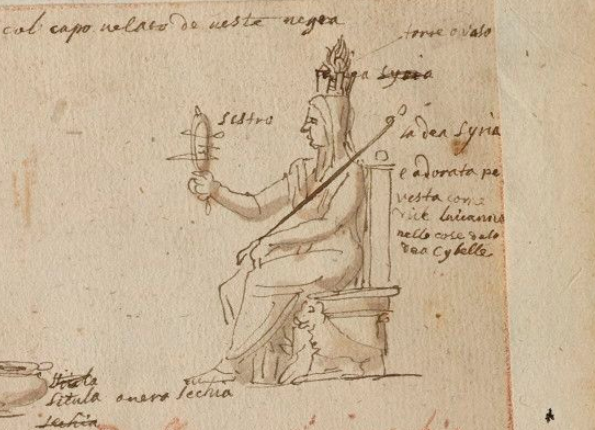 col capo velato de veste negra
torre o vaso
Syria
sistro
la dea Syria
e adorata pe
vesta come
nelle cose dela
dea Cybelle
situla overo sechia
sechia